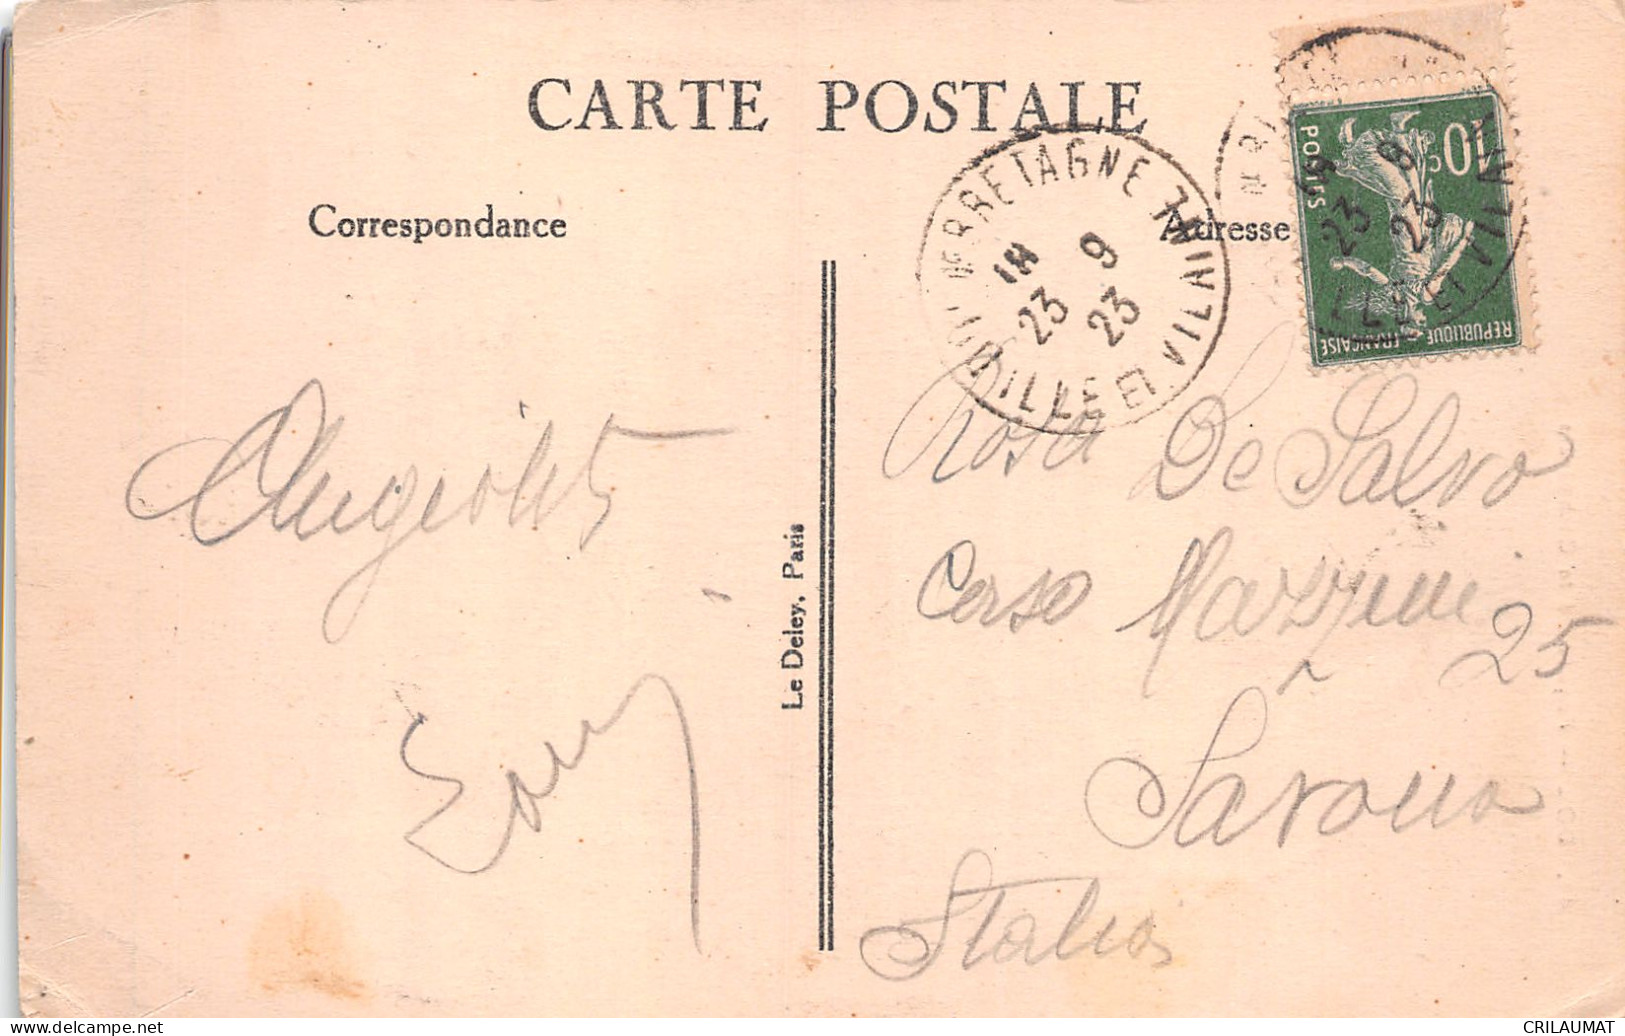 CARTE POSTALE
Correspondance
Adresse
BRETAGNE
18 9
23 23
ILLE ET VILAINE
10c
POSTES
REPUBLIQUE FRANÇAISE
23 23
Le Deley, Paris
Rosa De Salvo
Corso Mazzini
25
à
Savona
Italia
CRILAUMAT